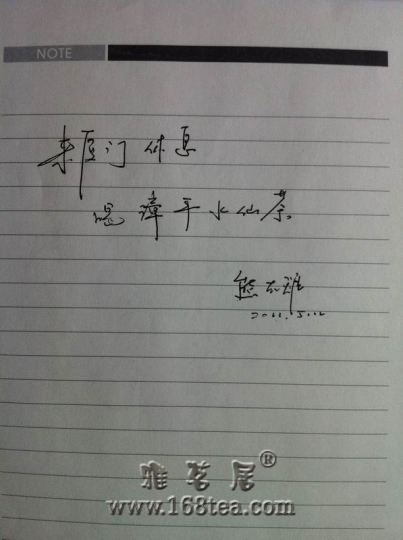 NOTE
来厦门休息
喝漳平水仙茶。
熊
2011.5.12
雅茗居®
www.168tea.com